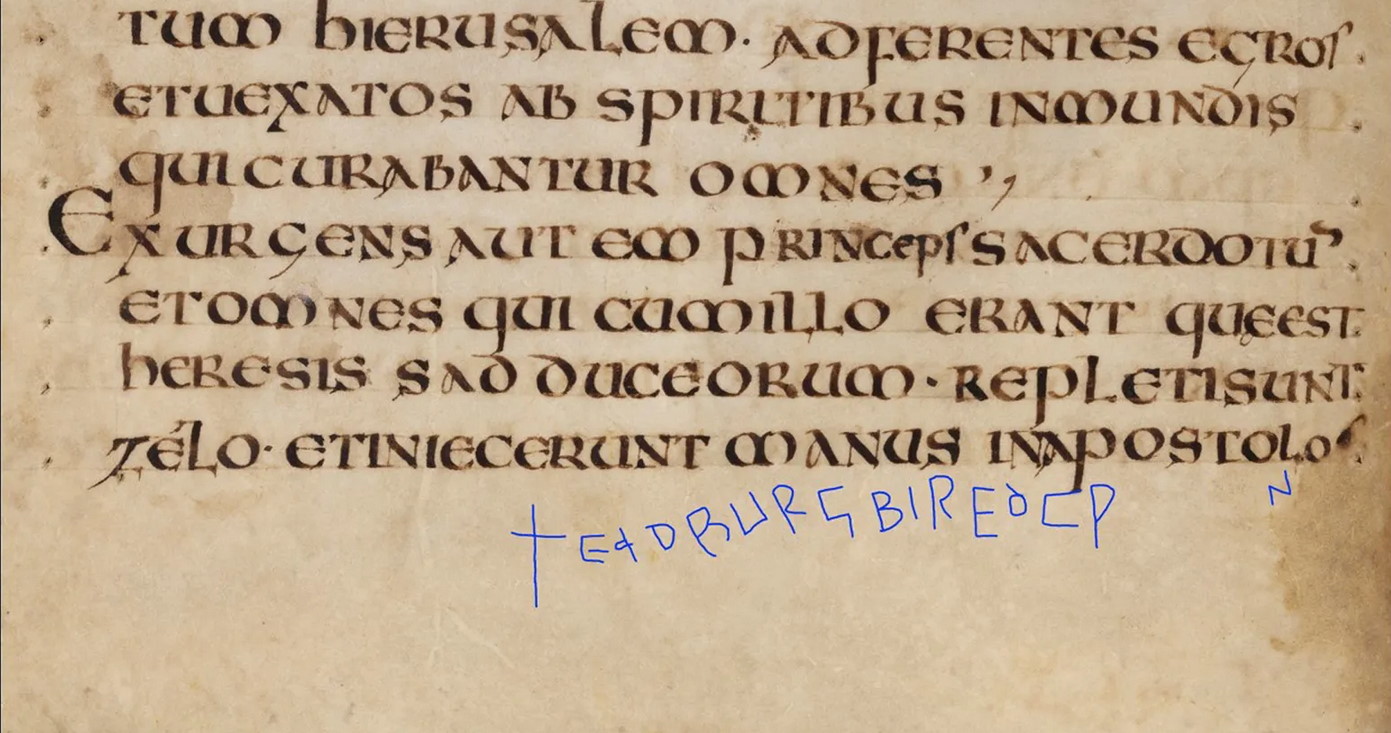 TUM hIERUSALEM· ADFERENTES EGROS.
ETUEXATOS AB SPIRITIBUS INMUNDIS
QUICURABANTUR OMNES ’,
EXURGENS AUT EM PRINCEPS SACERDOTŪ
ETOMNES QUI CUMILLO ERANT QUEEST.
hERESIS SAD DUCEORUM· REPLETISUNT.
ZÉLO· ETINIECERUNT MANUS INAPOSTOLOS.
+EADBURG BIREÐ CP N